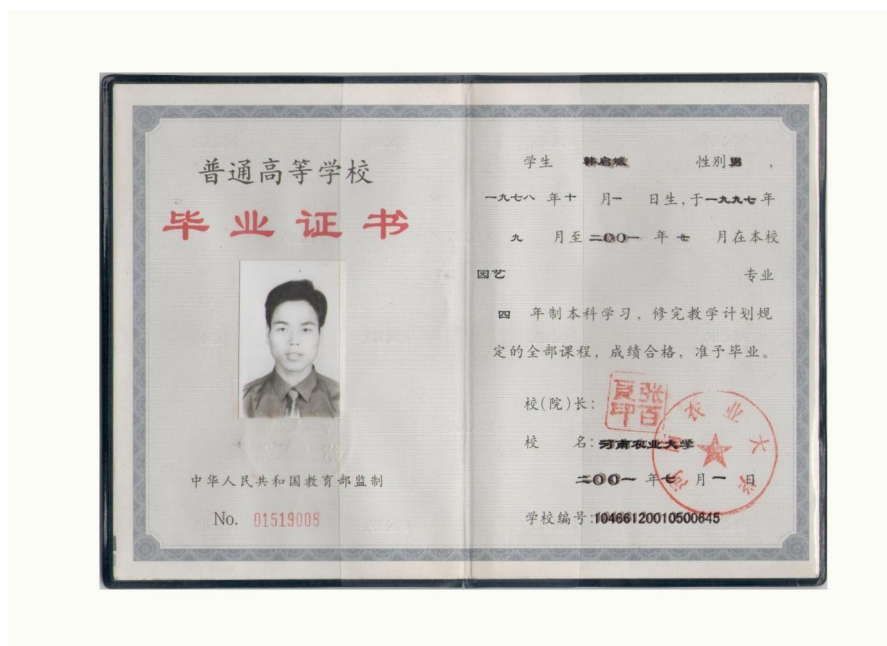 普通高等学校
毕业证书
中华人民共和国教育部监制
No. 01519008
学生 韩启斌 性别 男 ，
一九七八 年 十 月 一 日生，于 一九九七 年
九 月至 二〇〇一 年 七 月在本校
园艺 专业
四 年制本科学习，修完教学计划规
定的全部课程，成绩合格，准予毕业。
校(院)长：
张百
夏印
校 名：河南农业大学
二〇〇一 年 七 月 一 日
学校编号：10466120010500645
河南农业大学